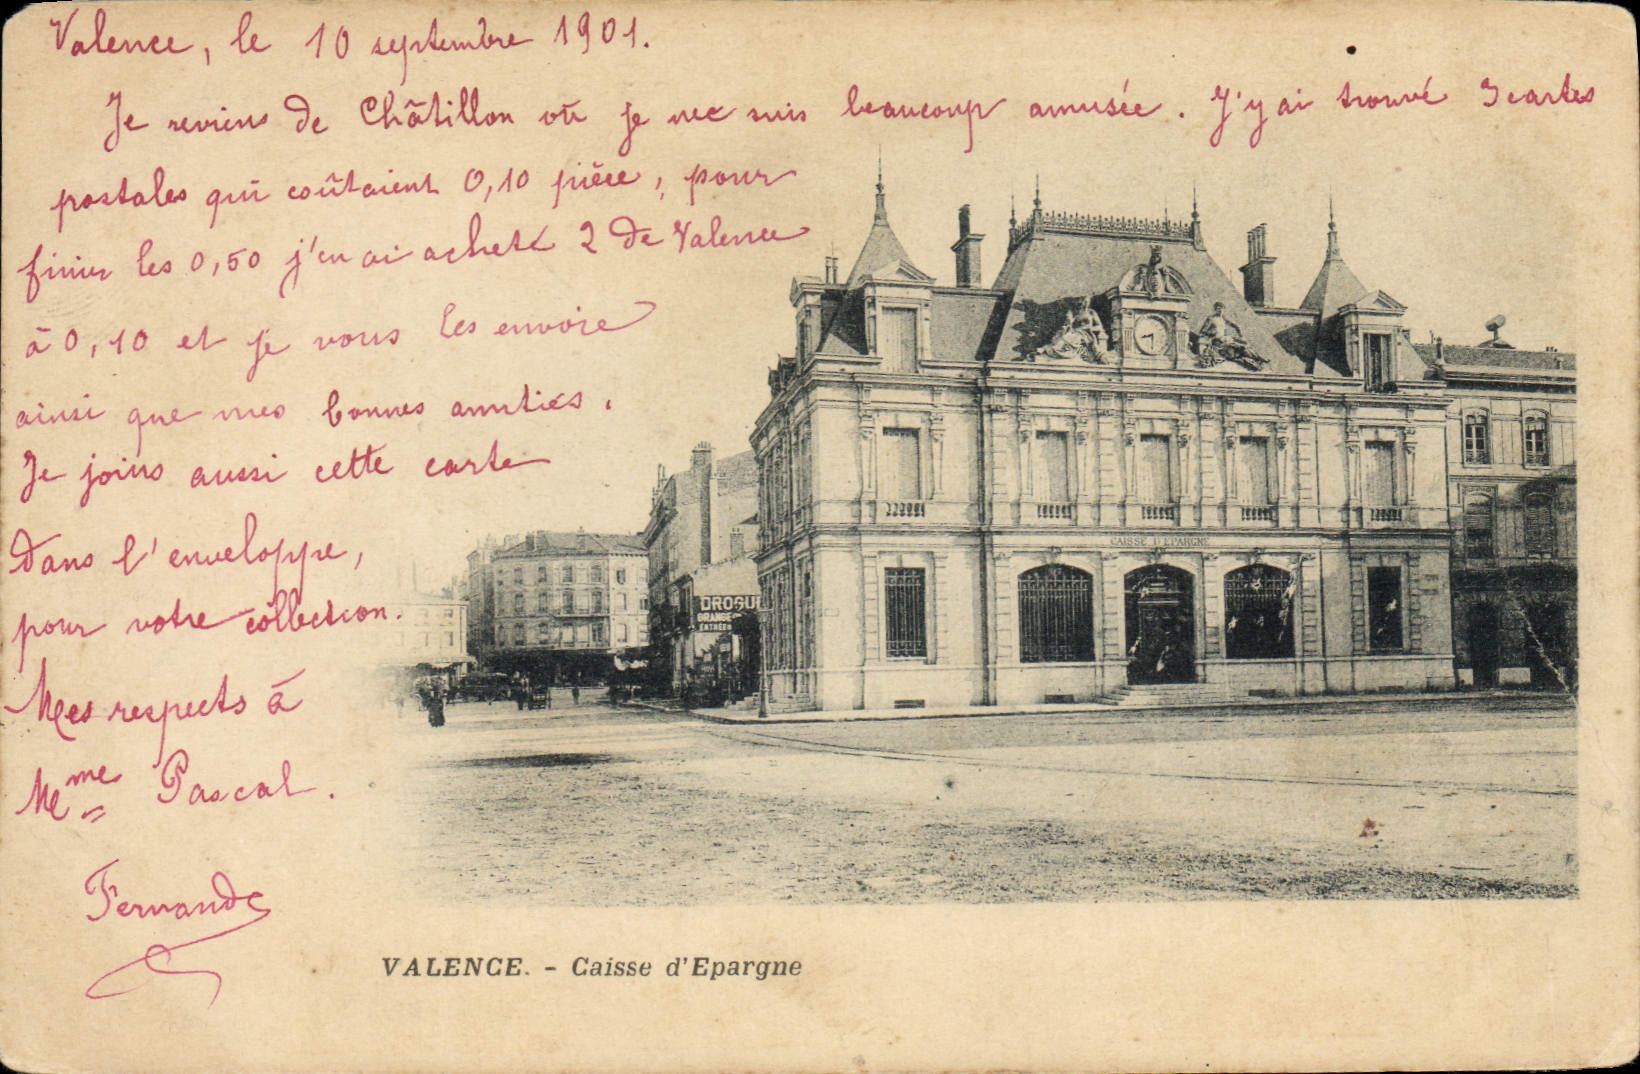 Valence, le 10 septembre 1901.
Je reviens de Châtillon où je me suis beaucoup amusée. J'y ai trouvé 3 cartes
postales qui coûtaient 0,10 pièce, pour
finir les 0,50 j'en ai acheté 2 de Valence
à 0,10 et je vous les envoie
ainsi que mes bonnes amitiés.
Je joins aussi cette carte
dans l'enveloppe,
pour votre collection.
Mes respects à
Mme Pascal.
Fernande
CAISSE D'EPARGNE
DROGU
ORANGE
ENTRÉE
VALENCE. - Caisse d'Epargne